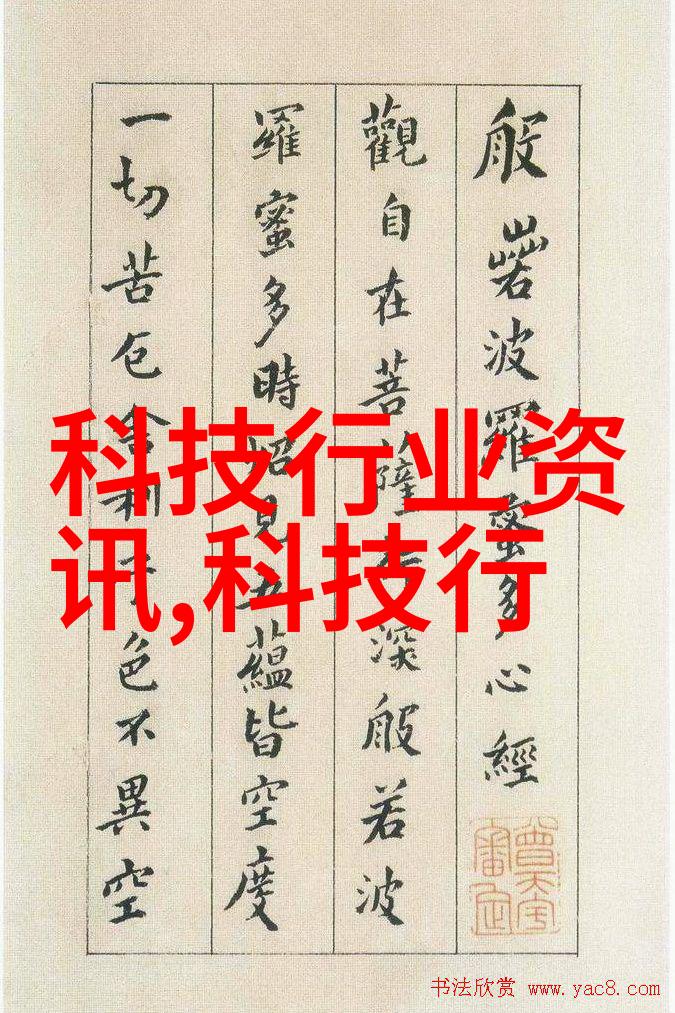 般若波羅蜜多心經
觀自在菩薩行深般若波
羅蜜多時照見五蘊皆空度
一切苦厄舍利子色不異空
科技行业资
讯,科技行
书法欣赏 www.yac8.com